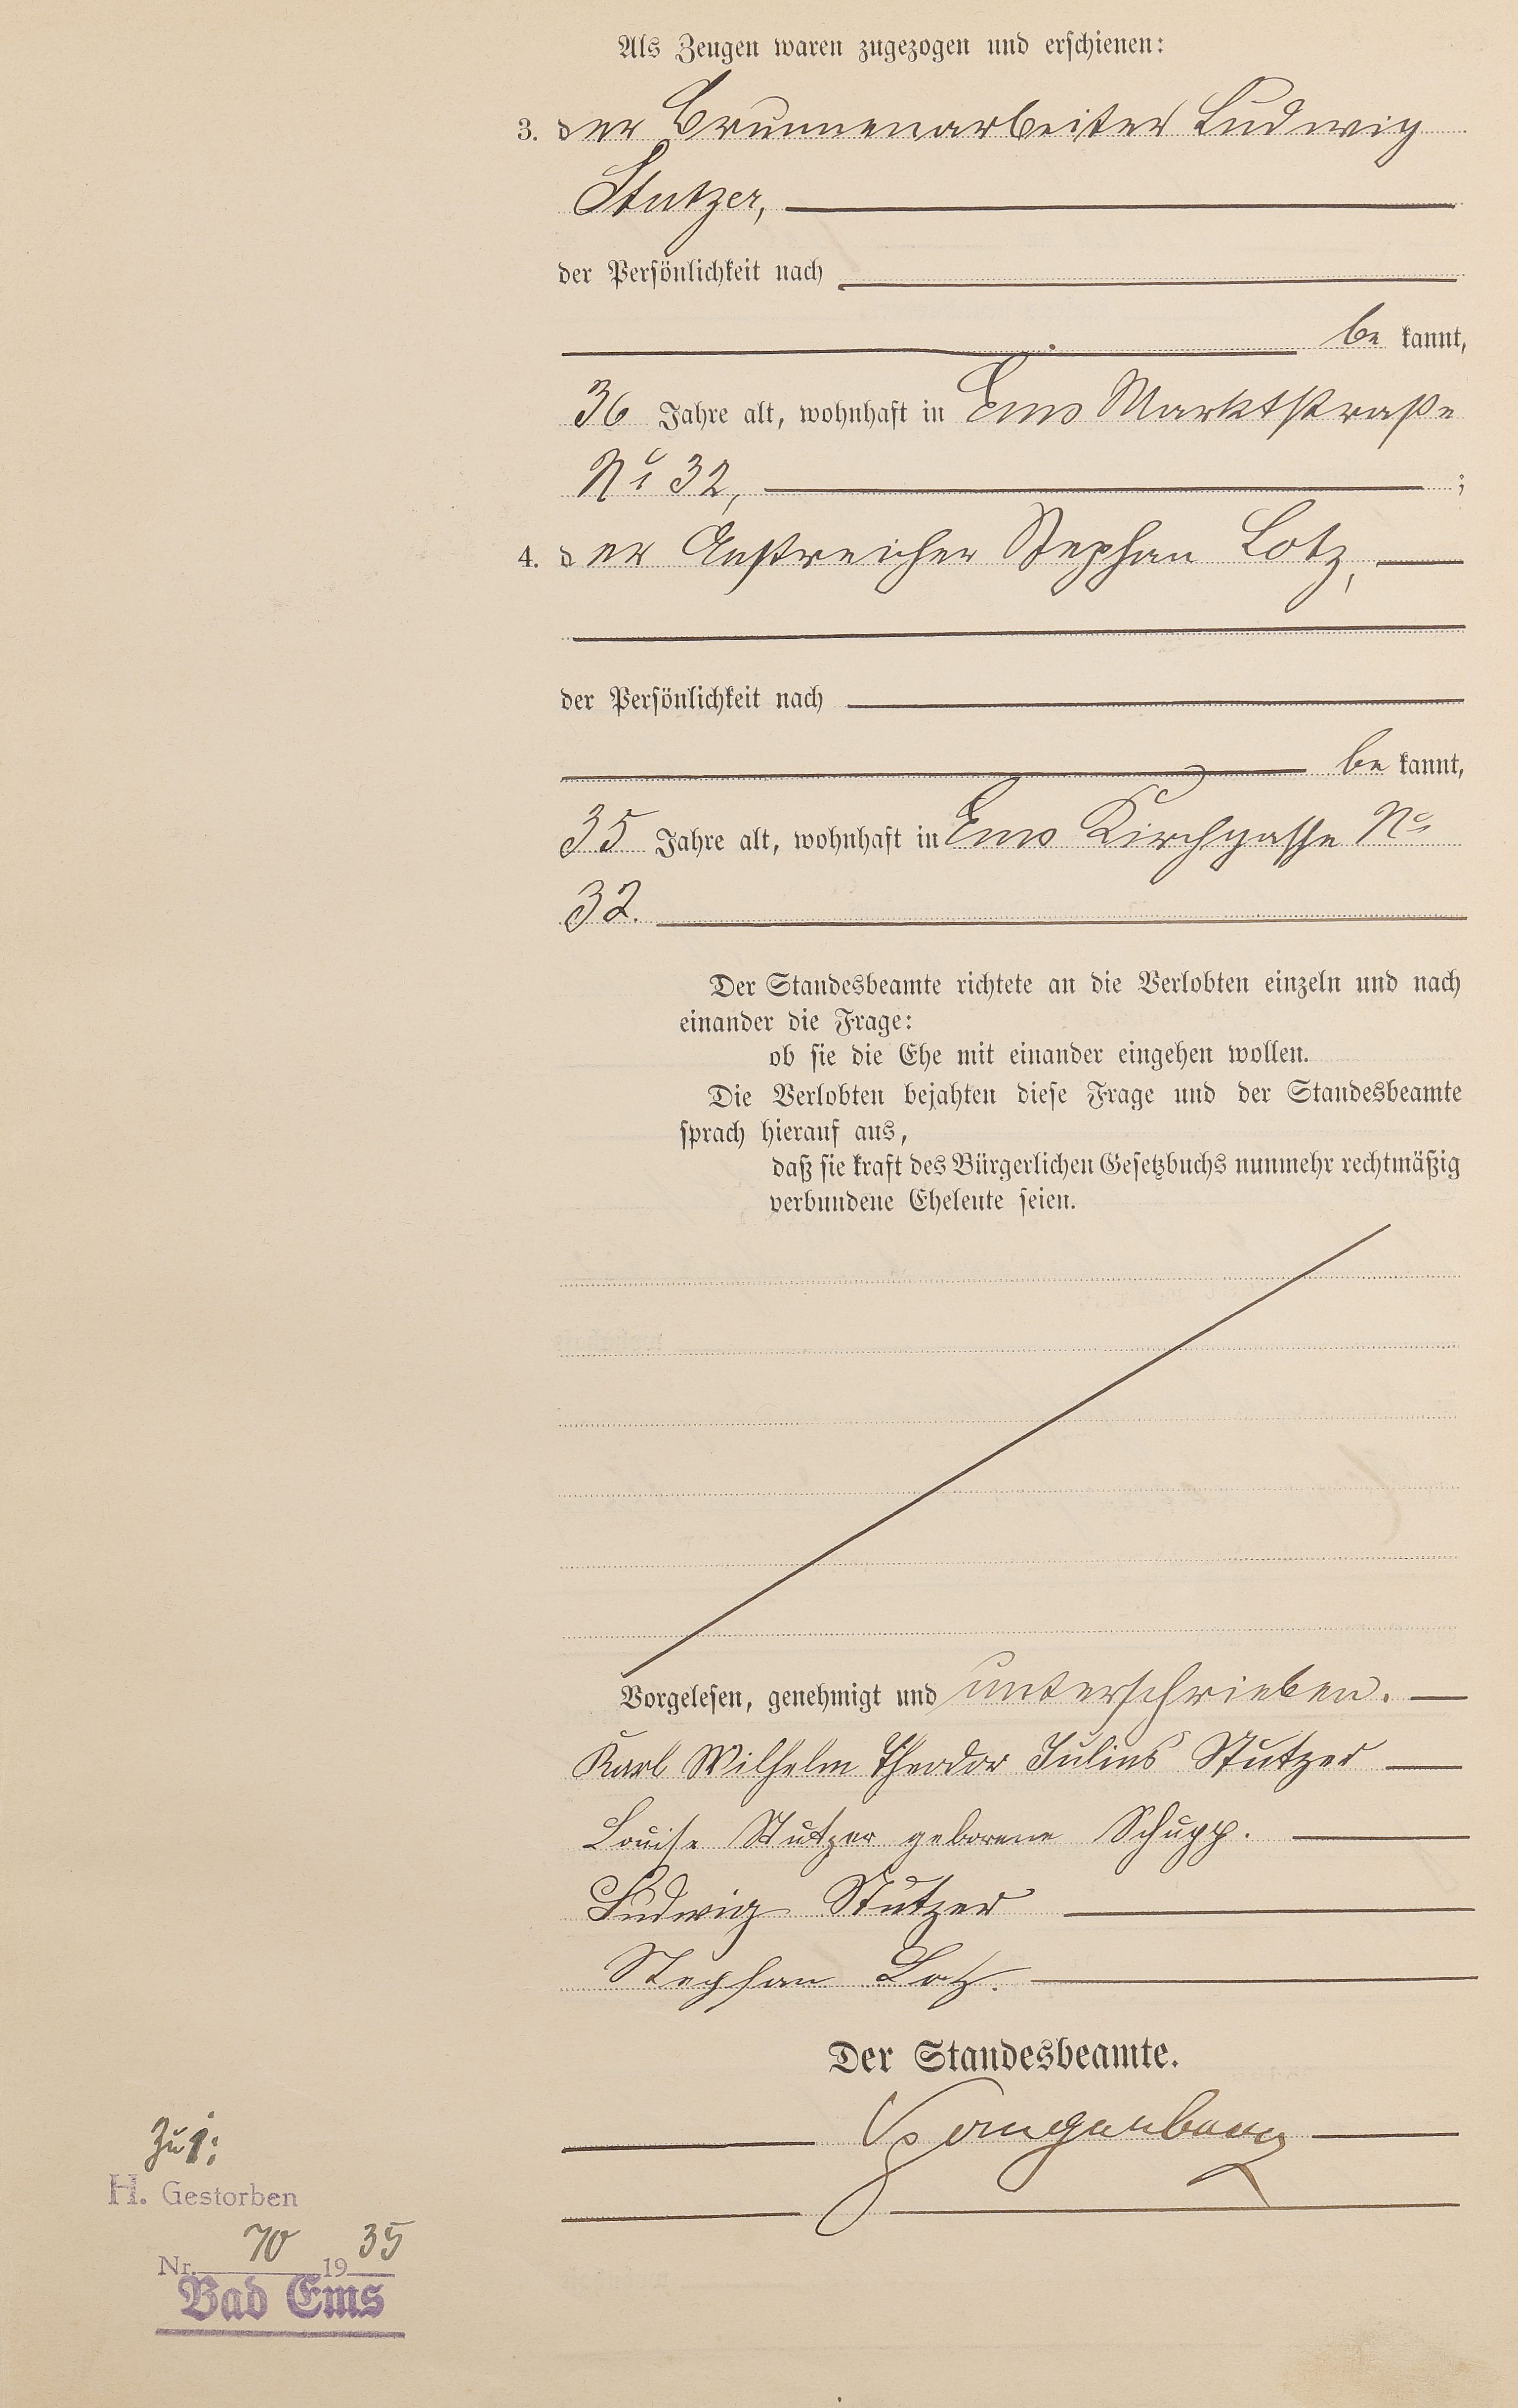 Als Zeugen waren zugezogen und erschienen:
3. der Brunnenarbeiter Ludwig
Stutzer,
der Persönlichkeit nach
be kannt,
36 Jahre alt, wohnhaft in Ems Marktstraße
No 32, ;
4. der Anstreicher Stephan Lotz,
der Persönlichkeit nach
be kannt,
35 Jahre alt, wohnhaft in Ems Kirchgasse No
32.
Der Standesbeamte richtete an die Verlobten einzeln und nach
einander die Frage:
ob sie die Ehe mit einander eingehen wollen.
Die Verlobten bejahten diese Frage und der Standesbeamte
sprach hierauf aus,
daß sie kraft des Bürgerlichen Gesetzbuchs nunmehr rechtmäßig
verbundene Eheleute seien.
Vorgelesen, genehmigt und unterschrieben.
Karl Wilhelm Theodor Julius Stutzer
Louise Stutzer geborene Schupp.
Ludwig Stutzer
Stephan Lotz.
Der Standesbeamte.
Zu 1:
H. Gestorben
Nr. 70 1935
Bad Ems